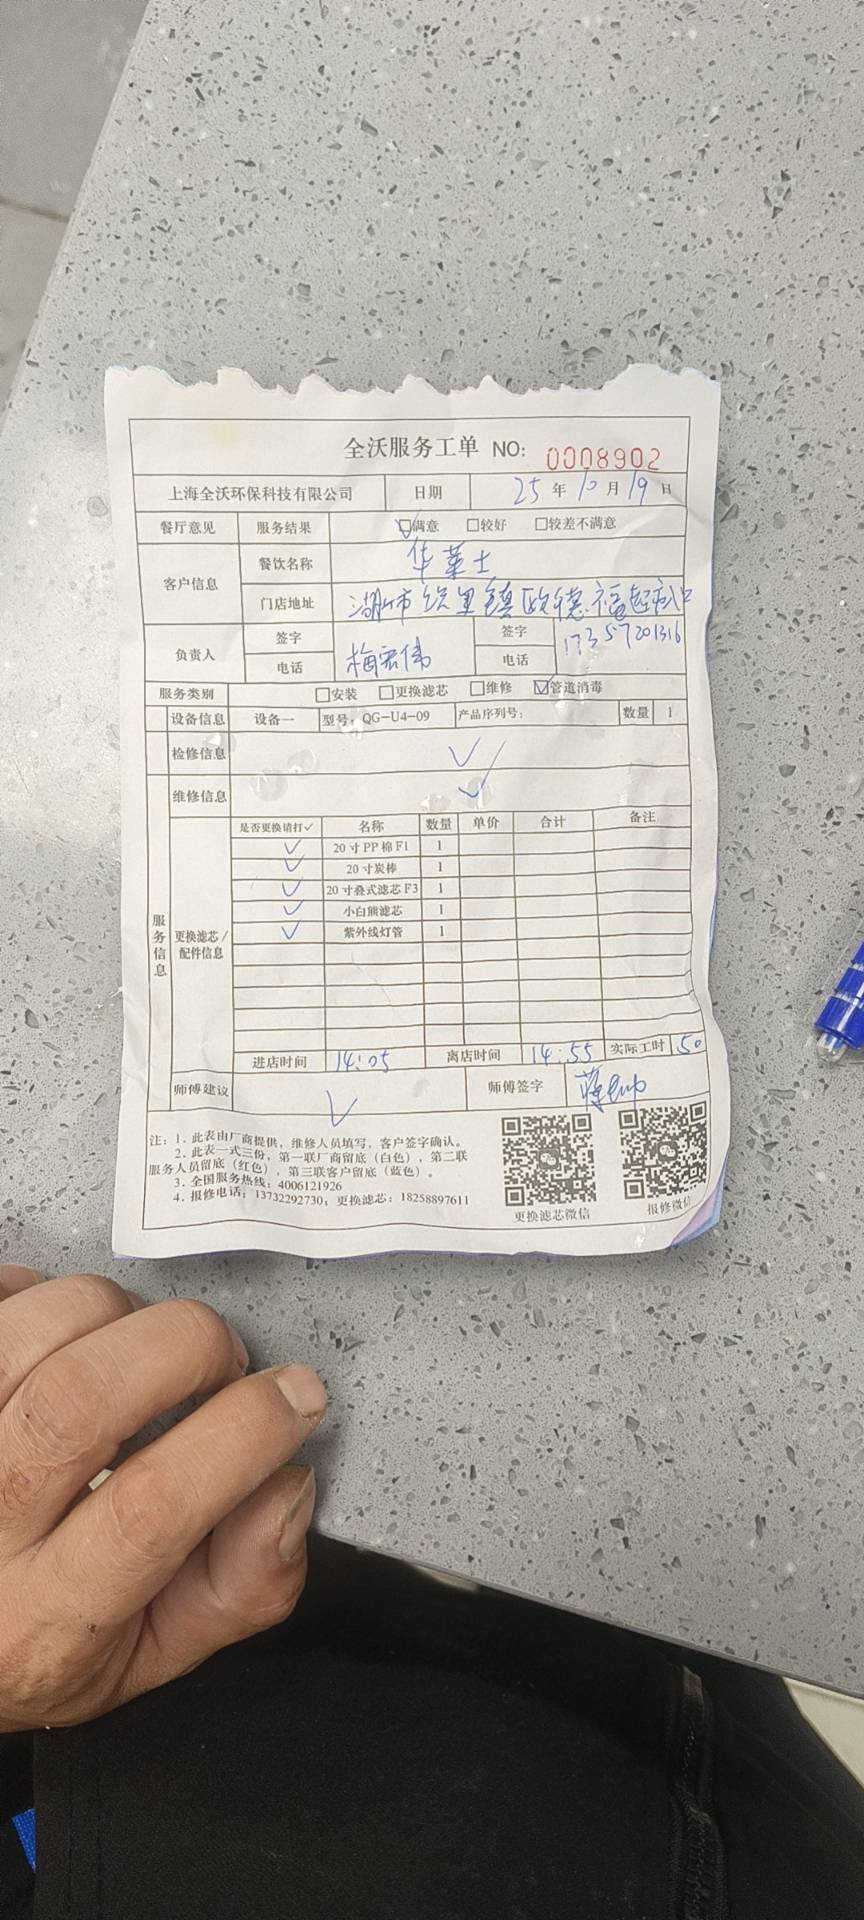 全沃服务工单 NO: 0008902
上海全沃环保科技有限公司 日期 25 年 10 月 19 日
餐厅意见 服务结果 ☑满意 □较好 □较差不满意
客户信息 餐饮名称 华莱士
门店地址 湖州市织里镇欧德福超市门口
负责人 签字 电话 梅宏伟 签字 电话 17357201316
服务类别 □安装 □更换滤芯 □维修 ☑管道消毒
设备信息 设备一 型号: QG-U4-09 产品序列号: 数量 1
检修信息 ✓
维修信息 ✓
服务信息
更换滤芯/配件信息
是否更换请打✓ 名称 数量 单价 合计 备注
✓ 20寸PP棉F1 1
✓ 20寸炭棒 1
✓ 20寸叠式滤芯F3 1
✓ 小白熊滤芯 1
✓ 紫外线灯管 1
进店时间 14:05 离店时间 14:55 实际工时 50
师傅建议 ✓ 师傅签字
注: 1. 此表由厂商提供, 维修人员填写, 客户签字确认。
2. 此表一式三份, 第一联厂商留底 (白色), 第二联
服务人员留底 (红色), 第三联客户留底 (蓝色)。
3. 全国服务热线: 4006121926
4. 报修电话: 13732292730; 更换滤芯: 18258897611
更换滤芯微信 报修微信